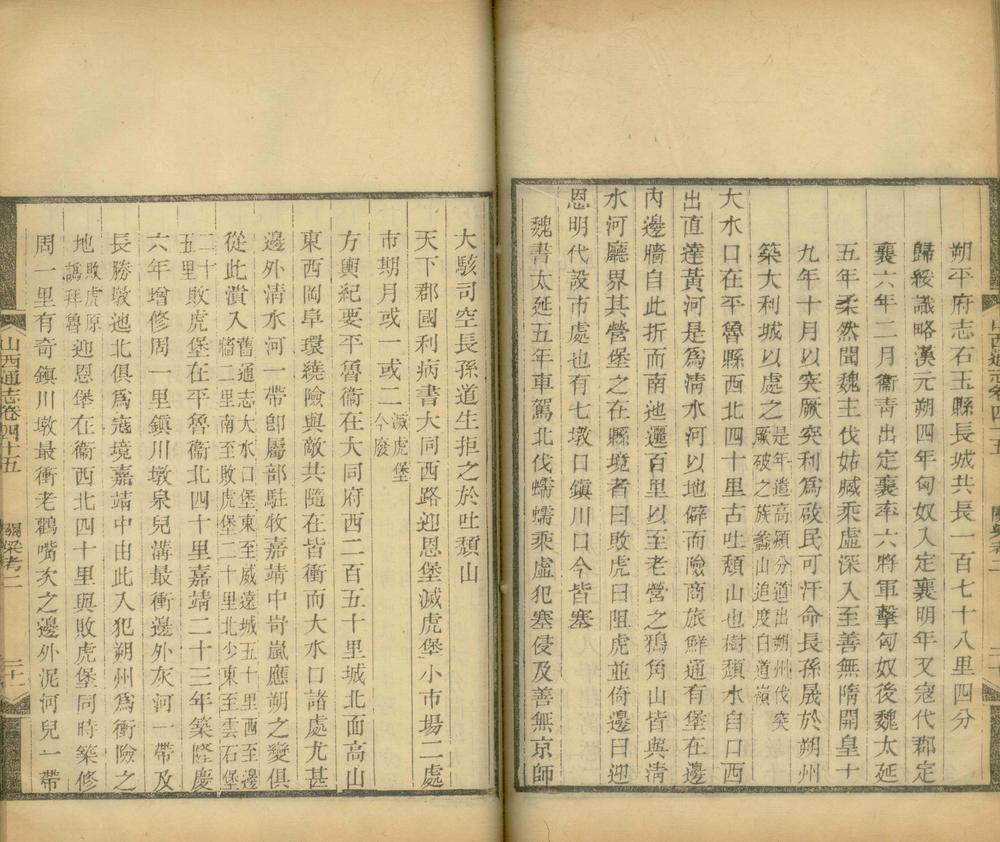 朔平府志石玉縣長城共長一百七十八里四分
歸綏識略漢元朔四年匈奴入定襄明年又寇代郡定
襄六年二月衞青出定襄率六將軍擊匈奴後魏太延
五年柔然聞魏主伐姑臧乘虛深入至善無隋開皇十
九年十月以突厥突利爲啟民可汗命長孫晟於朔州
築大利城以處之是年遣高熲分道出朔州伐突
厥破之族蠡山追度白道嶺
大水口在平魯縣西北四十里古吐頹山也樹頹水自口西
出直達黃河是爲清水河以地僻而險商旅鮮通有堡在邊
內邊牆自此折而南迆邐百里以至老營之鴉角山皆與淸
水河廳界其營堡之在縣境者曰敗虎曰阻虎並倚邊曰迎
恩明代設市處也有七墩口鎭川口今皆塞
魏書太延五年車駕北伐蠕蠕乘虛犯塞侵及善無京師
大駭司空長孫道生拒之於吐頹山
天下郡國利病書大同西路迎恩堡滅虎堡小市場二處
市期月或一或二滅虎堡
今廢
方輿紀要平魯衞在大同府西二百五十里城北面高山
東西岡阜環繞險與敵共隨在皆衝而大水口諸處尤甚
邊外淸水河一帶卽屬部駐牧嘉靖中岢嵐應朔之變俱
從此潰入舊通志大水口堡東至威遠城五十里西至邊
牆二里南至敗虎堡二十里北少東至雲石堡
二十
五里敗虎堡在平魯衞北四十里嘉靖二十三年築隆慶
六年增修周一里鎭川墩泉兒溝最衝邊外灰河一帶及
長勝墩迆北俱爲寇境嘉靖中由此入犯朔州爲衝險之
地敗虎原
譌拜魯迎恩堡在衞西北四十里與敗虎堡同時築修
周一里有奇鎭川墩最衝老鸛嘴次之邊外泥河兒一帶
山西通志卷四十五
關梁考二